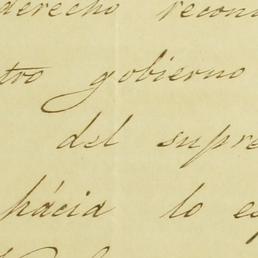 derecho recon
tro gobierno
del supre
hácia lo es